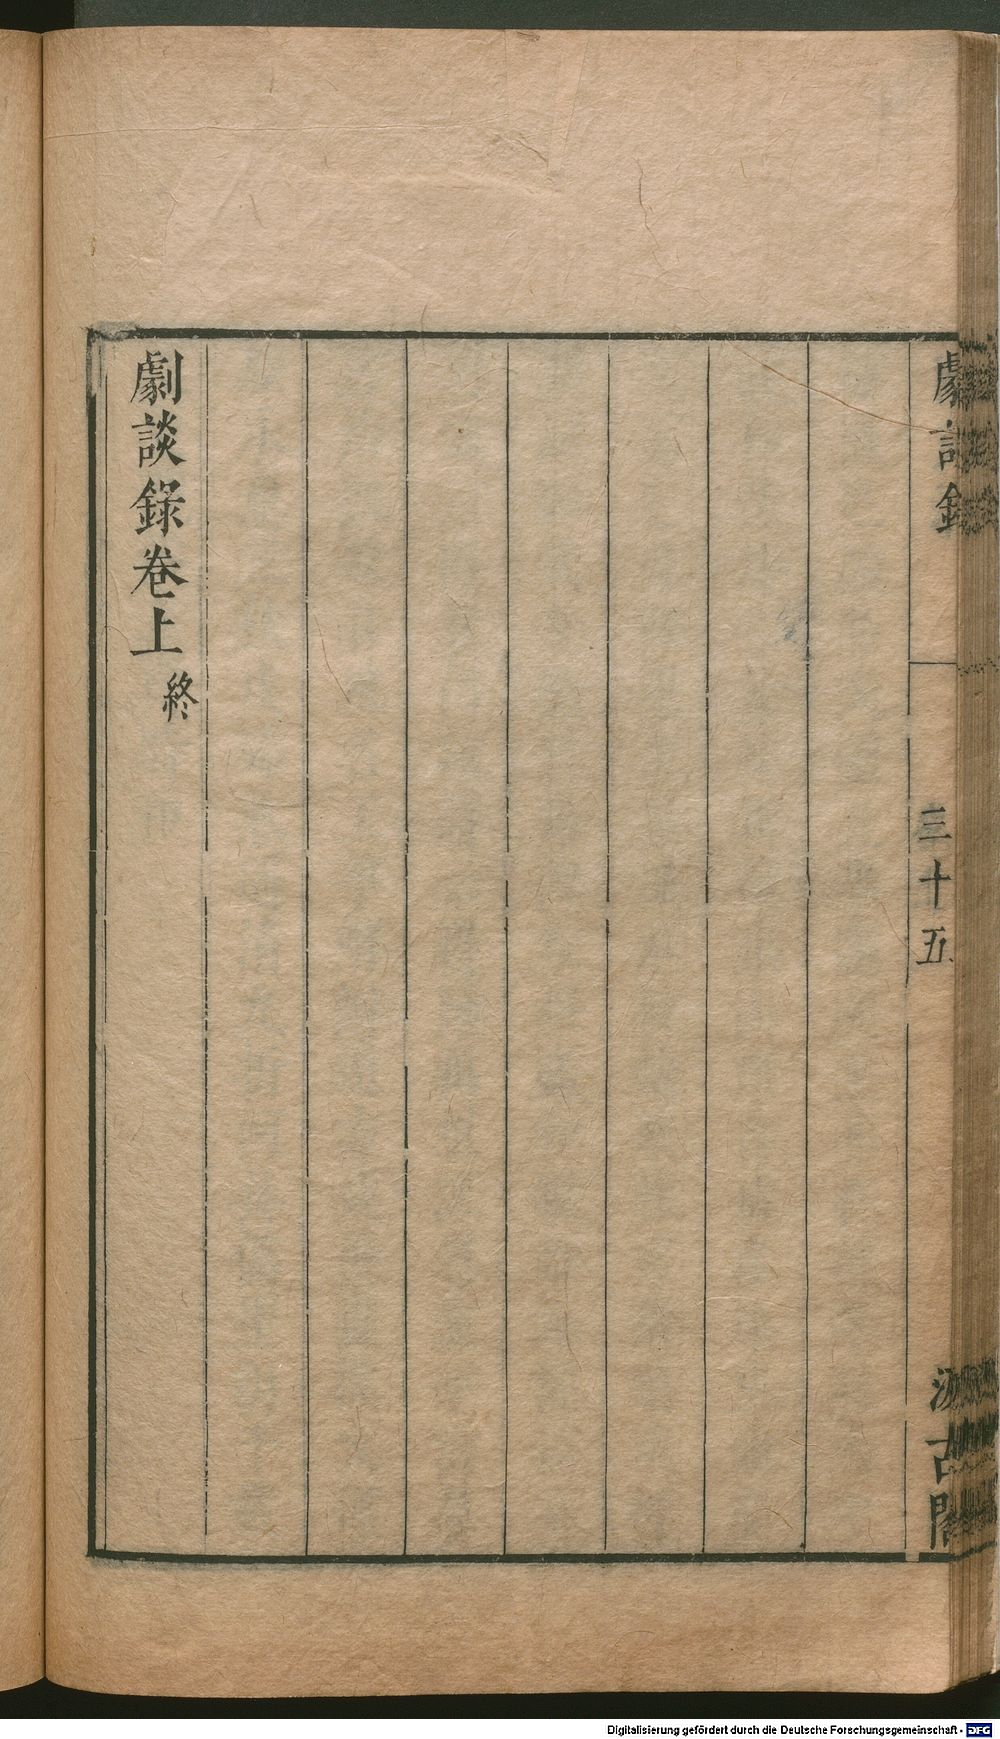 劇談錄
三十五
汲古閣
劇談錄卷上 終
Digitalisierung gefördert durch die Deutsche Forschungsgemeinschaft - DFG